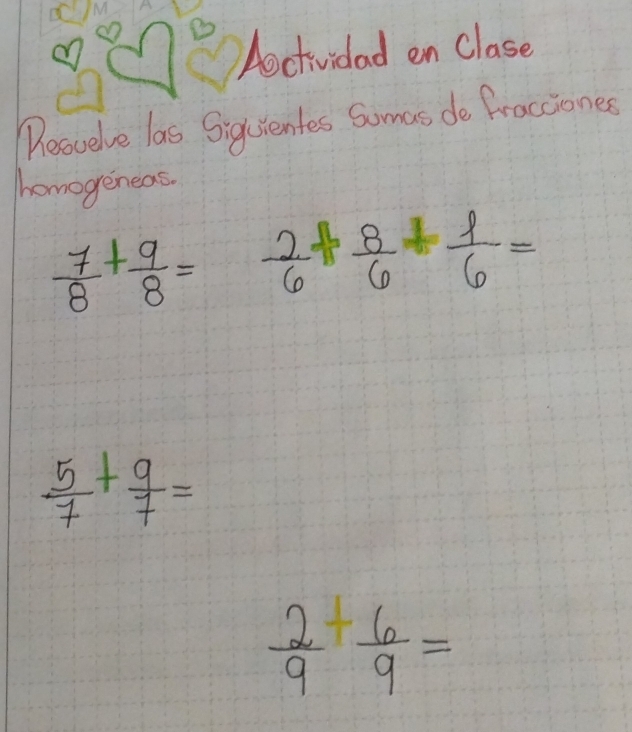 Aoctividad en Clase
Resuelve las Siguientes Sumas de fracciones
homogéneas.
7/8 + 9/8 =
2/6 + 8/6 + 1/6 =
5/7 + 9/7 =
2/9 + 6/9 =